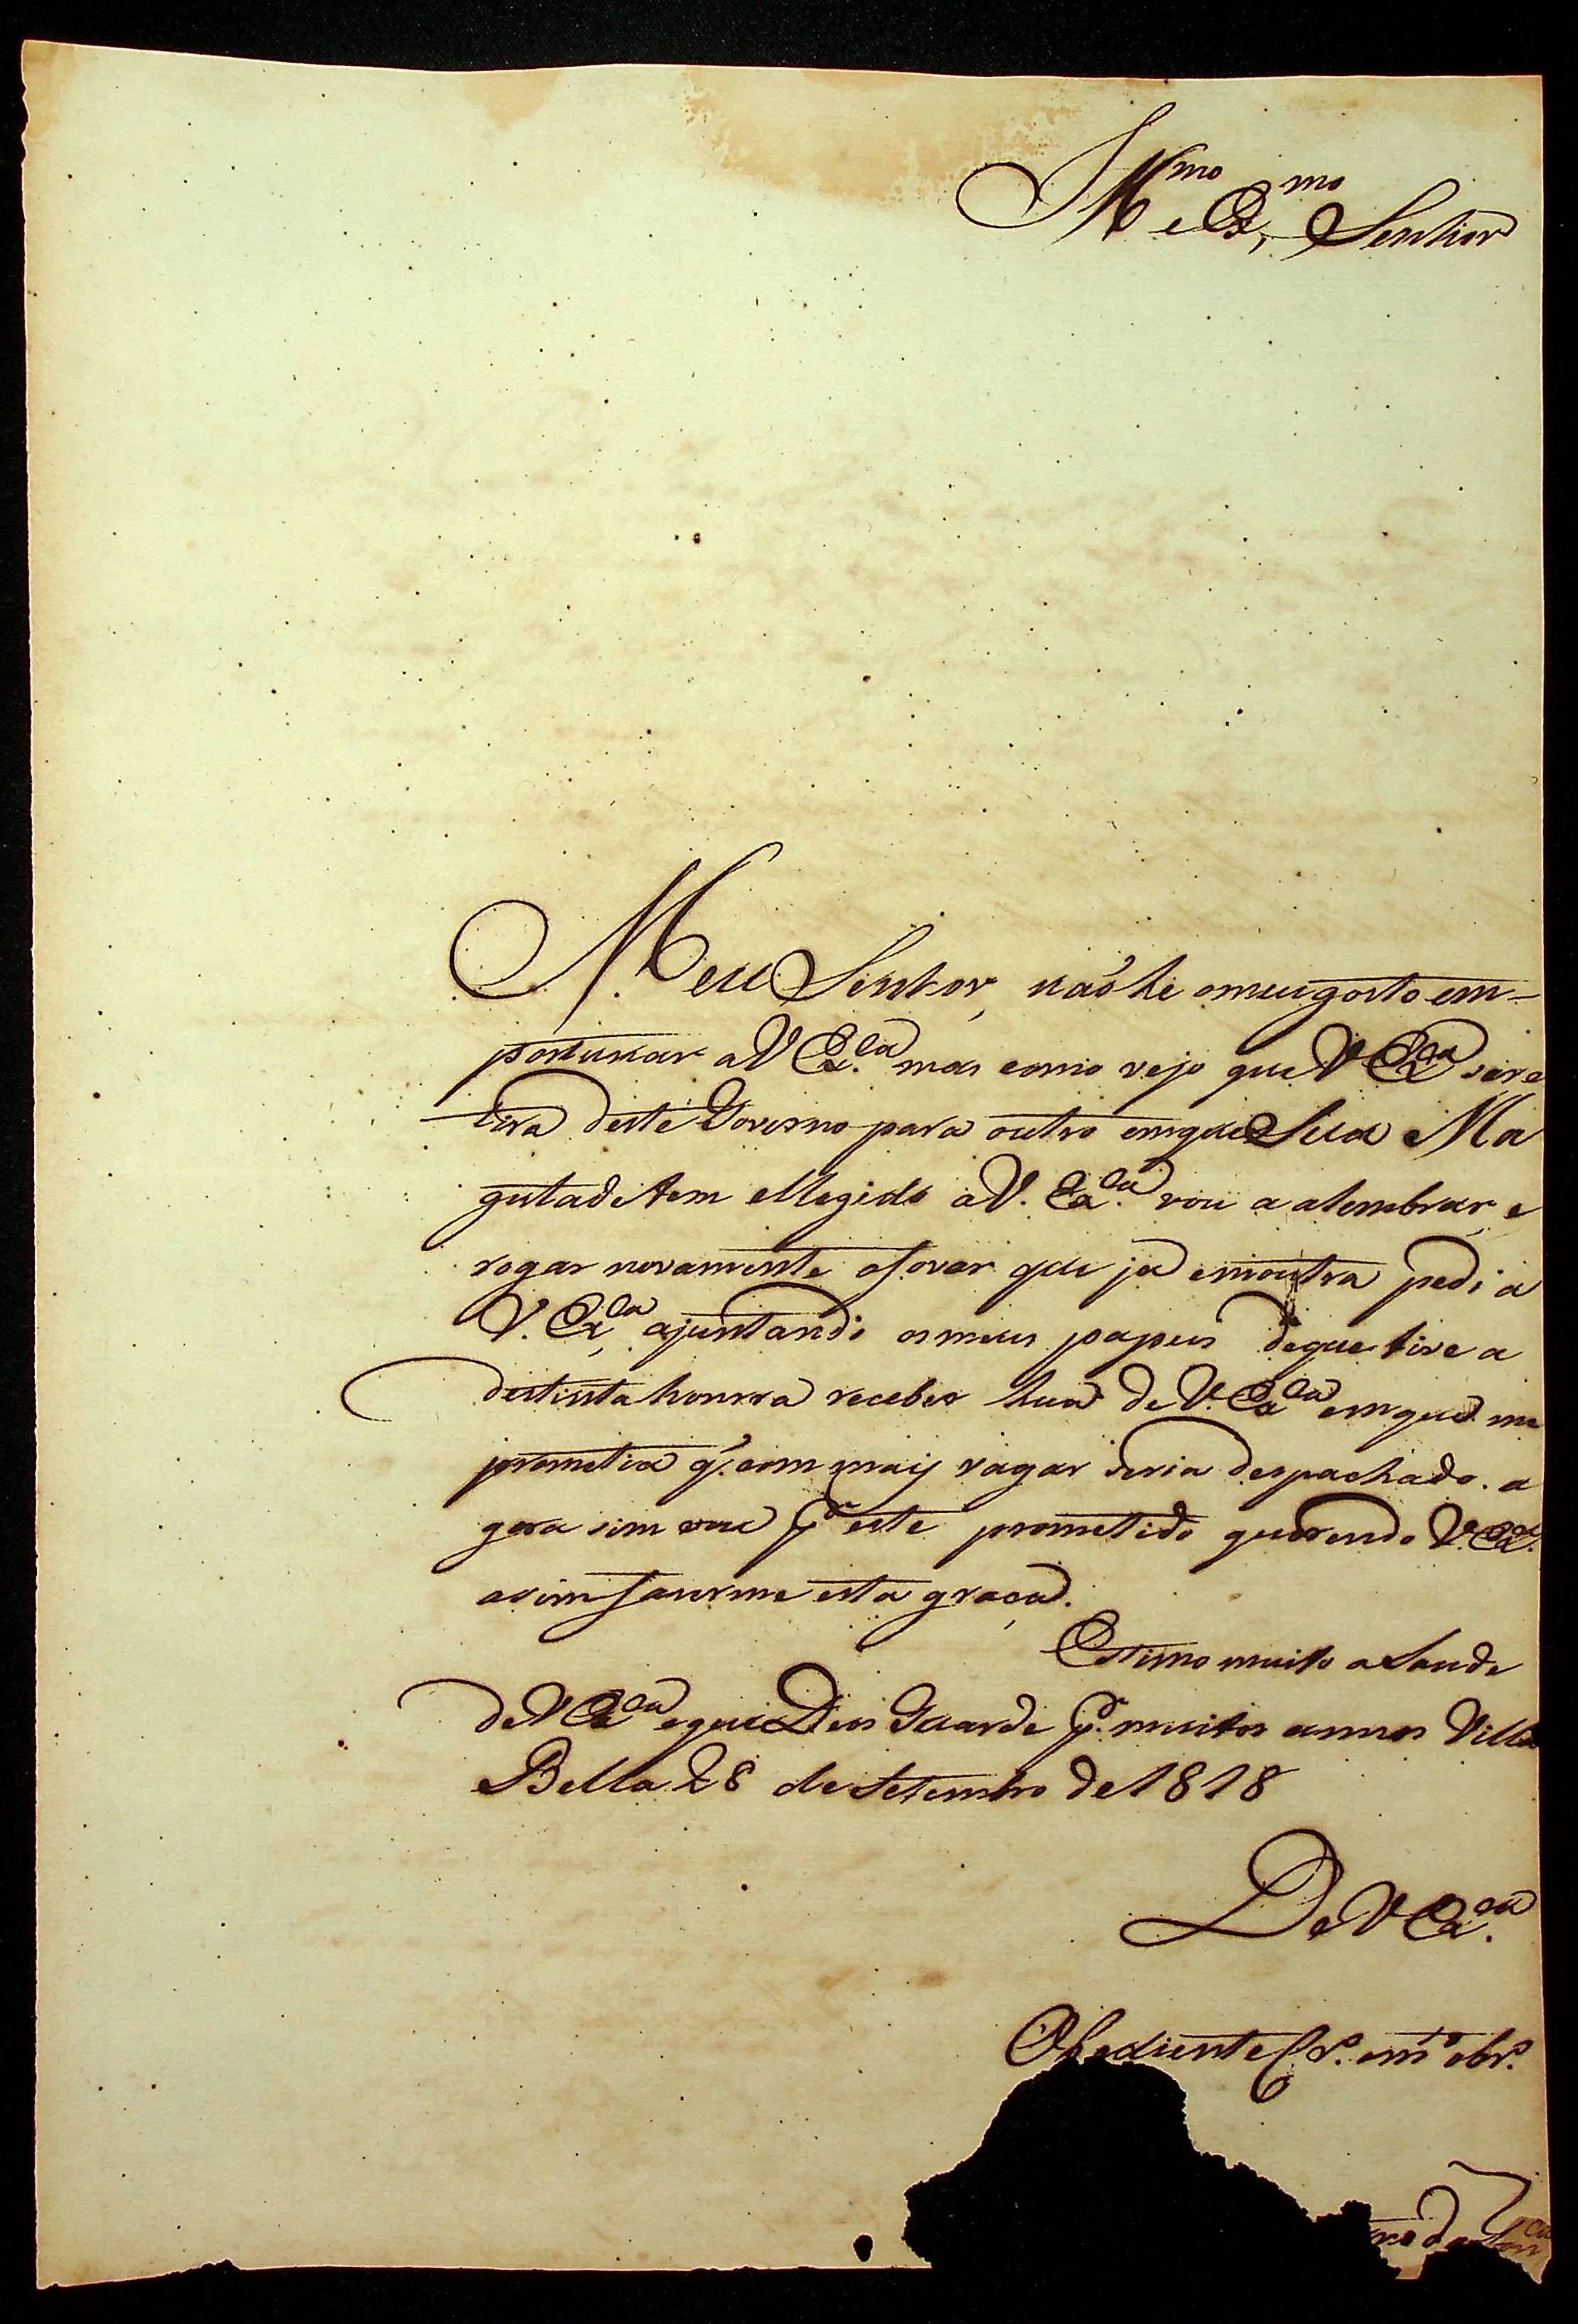 Illmo e Exmo Senhor
Meu Senhor, naõ he omeu gosto em-
portunar aV Ex.cia mas como vejo que V Ex.cia sere
tira deste Governo para outro emque Sua Ma
gestade tem ellegido aV. Ex.cia vou a alembrar, e
rogar novamente ofavor que ja emoutra pedi a
V. Ex.cia ajuntando osmeus papeis deque tive a
destinta honrra receber hua de V. Ex.cia emque me
prometia q. com maij vagar seria despachado. a
gora sim vou p.r este prometido querendo V. Ex.a
asim fazerme esta graça.
Estimo muito a Saude
de V Ex.cia eque Deos Guarde p.r muitos annos Villa
Bella 28 de Setembro de 1818
De V Ex.cia
Obediente C.do em.to obr.o